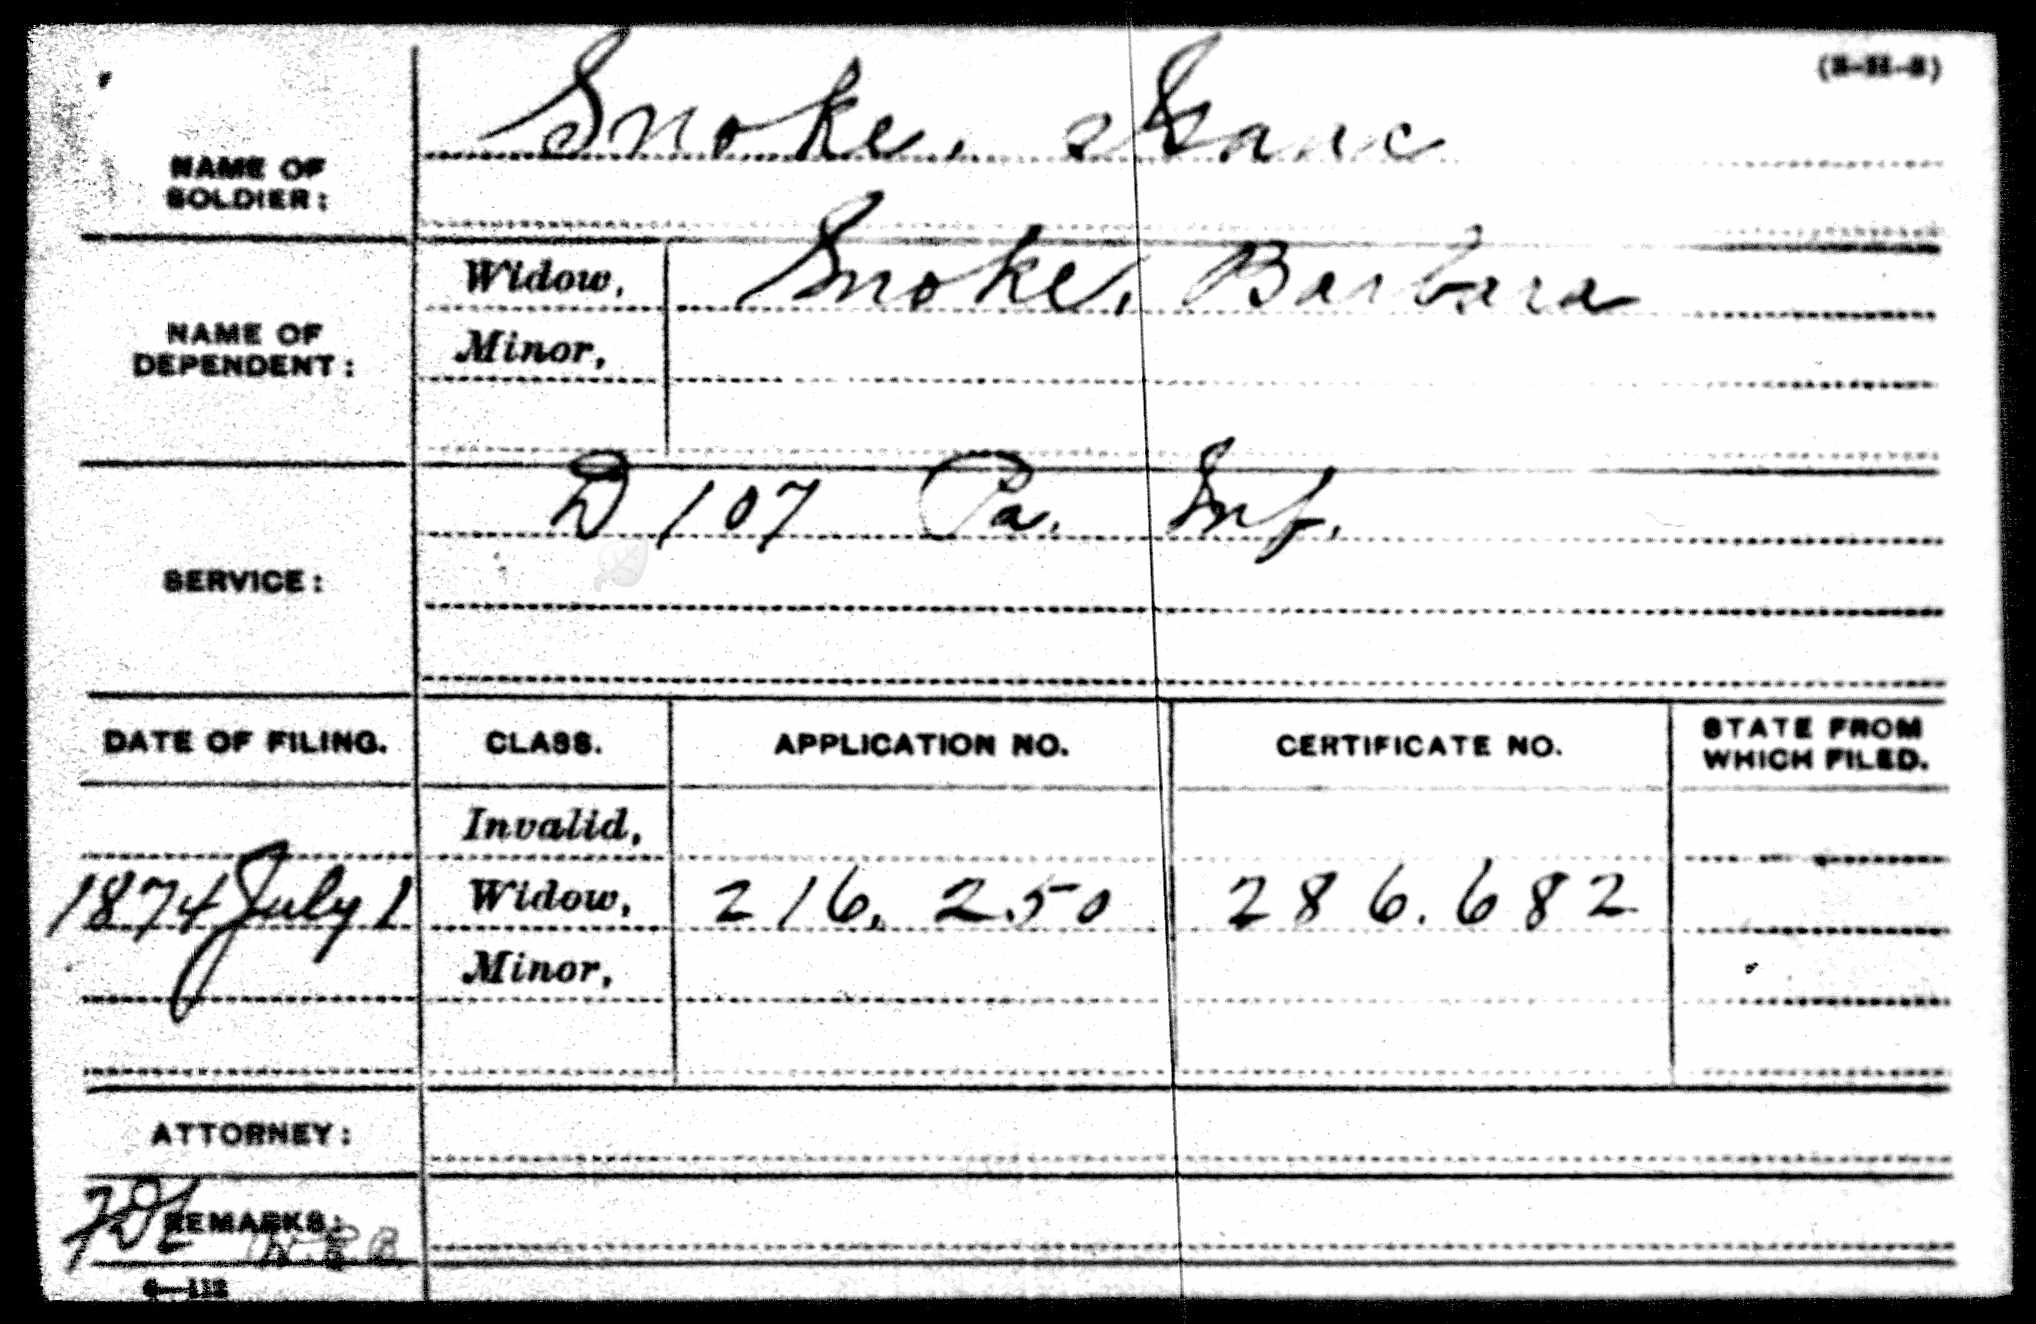 Snoke, Isaac
NAME OF
SOLDIER:
NAME OF
DEPENDENT:
Widow, Snoke, Barbara
Minor,
SERVICE:
D 107 Pa. Inf.
DATE OF FILING. CLASS. APPLICATION NO. CERTIFICATE NO. STATE FROM WHICH FILED.
Invalid,
1874 July 1 Widow, 216,250 286.682
Minor,
ATTORNEY:
REMARKS:
6—112